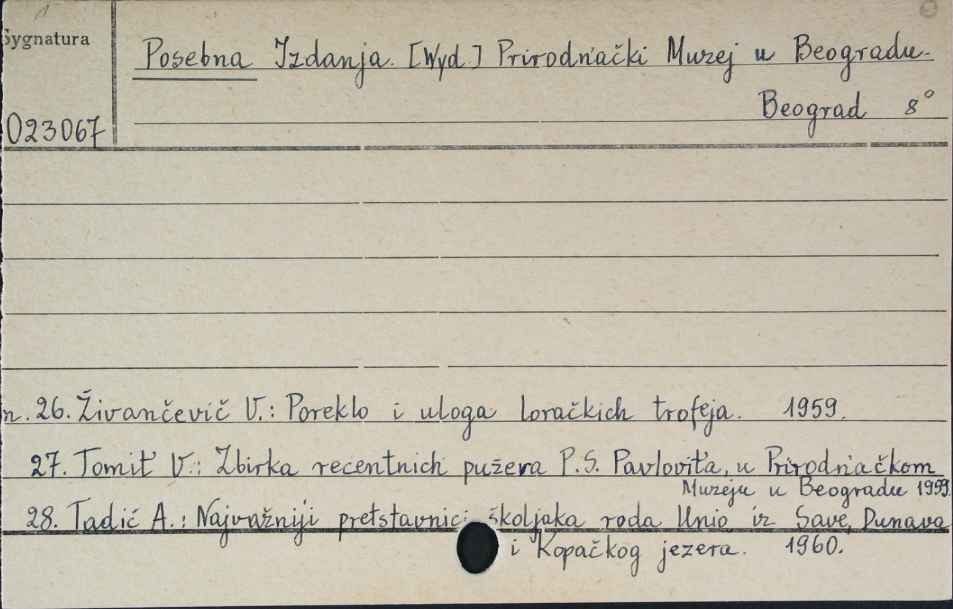 Sygnatura
Posebna Izdanja. [Wyd.] Prirodn'ački Muzej u Beogradu.
Beograd 8°
023067
n. 26. Živančevič V.: Poreklo i uloga loračkich trofeja. 1959.
27. Tomit' V.: Zbirka recentnich pužera P.S. Pavlovit'a, u Prirodn'ačkom
Muzeju u Beogradu 1959.
28. Tadić A.: Najvažniji pretstavnici školjaka roda Unio iz Save, Dunava
i Kopačkog jezera. 1960.